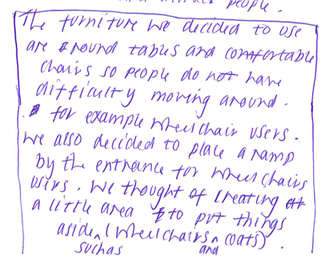 people.
The furniture we decided to use
are round tables and comfortable
chairs so people do not have
difficulty moving around.
for example wheelchair users.
We also decided to place a ramp
by the entrance for wheelchairs
users. We thought of creating
a little area to put things
aside (wheelchairs, coats).
suchas and